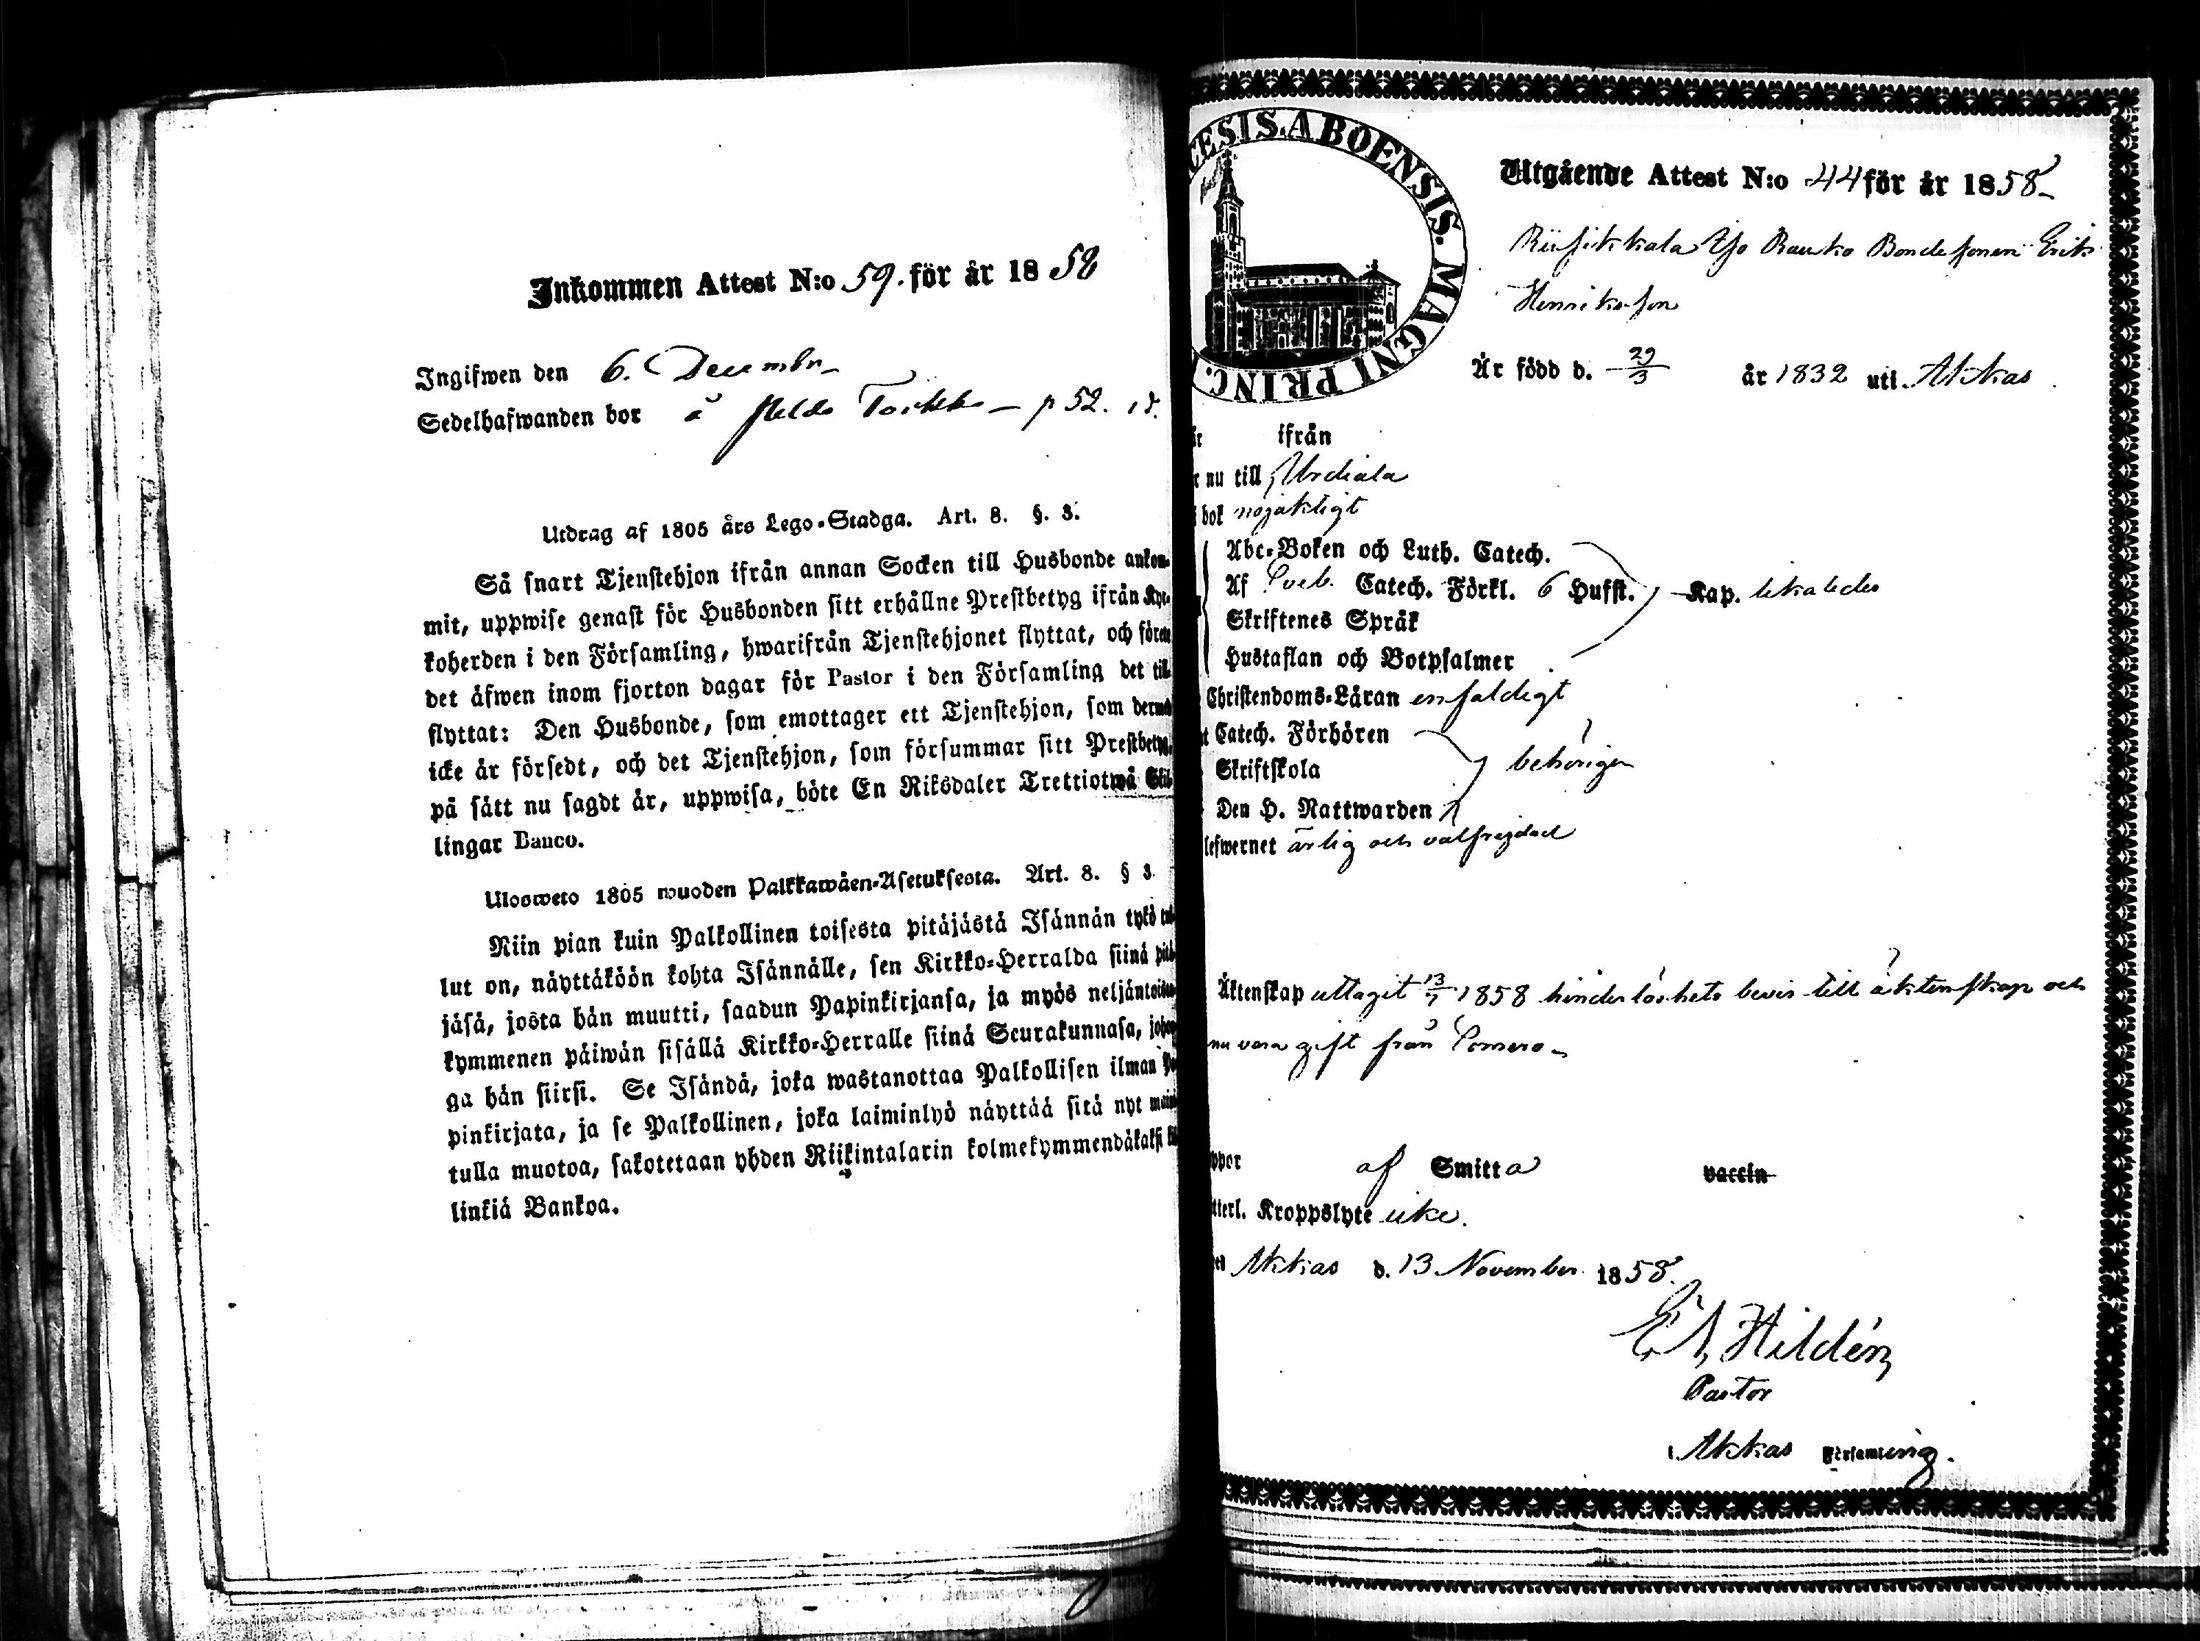 Inkommen Attest N:o 59. för år 1858
Ingifwen den 6. Decembr.
Sedelhafwanden bor å p 52.
Utdrag af 1805 års Lego-Stadga. Art. 8. §. 3.
Så snart Tjenstehjon ifrån annan Socken till Husbonde ankom-
mit, uppwise genast för Husbonden sitt erhållne Prestbetyg ifrån Kyr-
koherden i den Församling, hwarifrån Tjenstehjonet flyttat, och förete
det äfwen inom fjorton dagar för Pastor i den Församling det till-
flyttat: Den Husbonde, som emottager ett Tjenstehjon, som dermed
icke är försedt, och det Tjenstehjon, som försummar sitt Prestbetyg,
på sätt nu sagdt är, uppwisa, böte En Riksdaler Trettiotwå Skil-
lingar Banco.
Ulosweto 1805 wuoden Palkkawäen-Asetuksesta. Art. 8. § 3.
Niin pian kuin Palkollinen toisesta pitäjästä Isännän tykö tul-
lut on, näyttäköön kohta Isännälle, sen Kirkko-Herralda siinä pitä-
jäsä, josta hän muutti, saadun Papinkirjansa, ja myös neljäntoista-
kymmenen päiwän sisällä Kirkko-Herralle siinä Seurakunnasa, johon-
ga hän siirsi. Se Isändä, joka wastanottaa Palkollisen ilman Pa-
pinkirjata, ja se Palkollinen, joka laiminlyö näyttää sitä nyt mainit-
tulla muotoa, sakotetaan yhden Riikintalarin kolmekymmendäkaksi kil-
linkiä Bankoa.
CESIS. ABOENSIS. MAGNI PRINC.
Utgående Attest N:o 44 för år 1858
Riisikkala Yso Rauko Bondesonen Erik
Henriksson
Är född d. 29/3 år 1832 uti Akkas
ifrån
nu till Urdiala
bok nöjaktigt
Abc-Boken och Luth. Catech.
Af Sveb. Catech. Förkl. 6 Hufst. Kap. likaledes
Skriftenes Språk
Hustaflan och Botpsalmer
Christendoms-Läran enfaldigt
Catech. Förhören
Skriftskola behörigen
Den H. Nattwarden
lefwernet ärlig och välfrejdad
Äktenskap uttagit 13/7 1858 hinderlöshets bevis till äktenskap och
nu vara gift från Somero
af Smitta vaccin
Kroppslyte icke.
Akkas d. 13 November 1858.
E A Hildén
Pastor
i Akkas Församling.